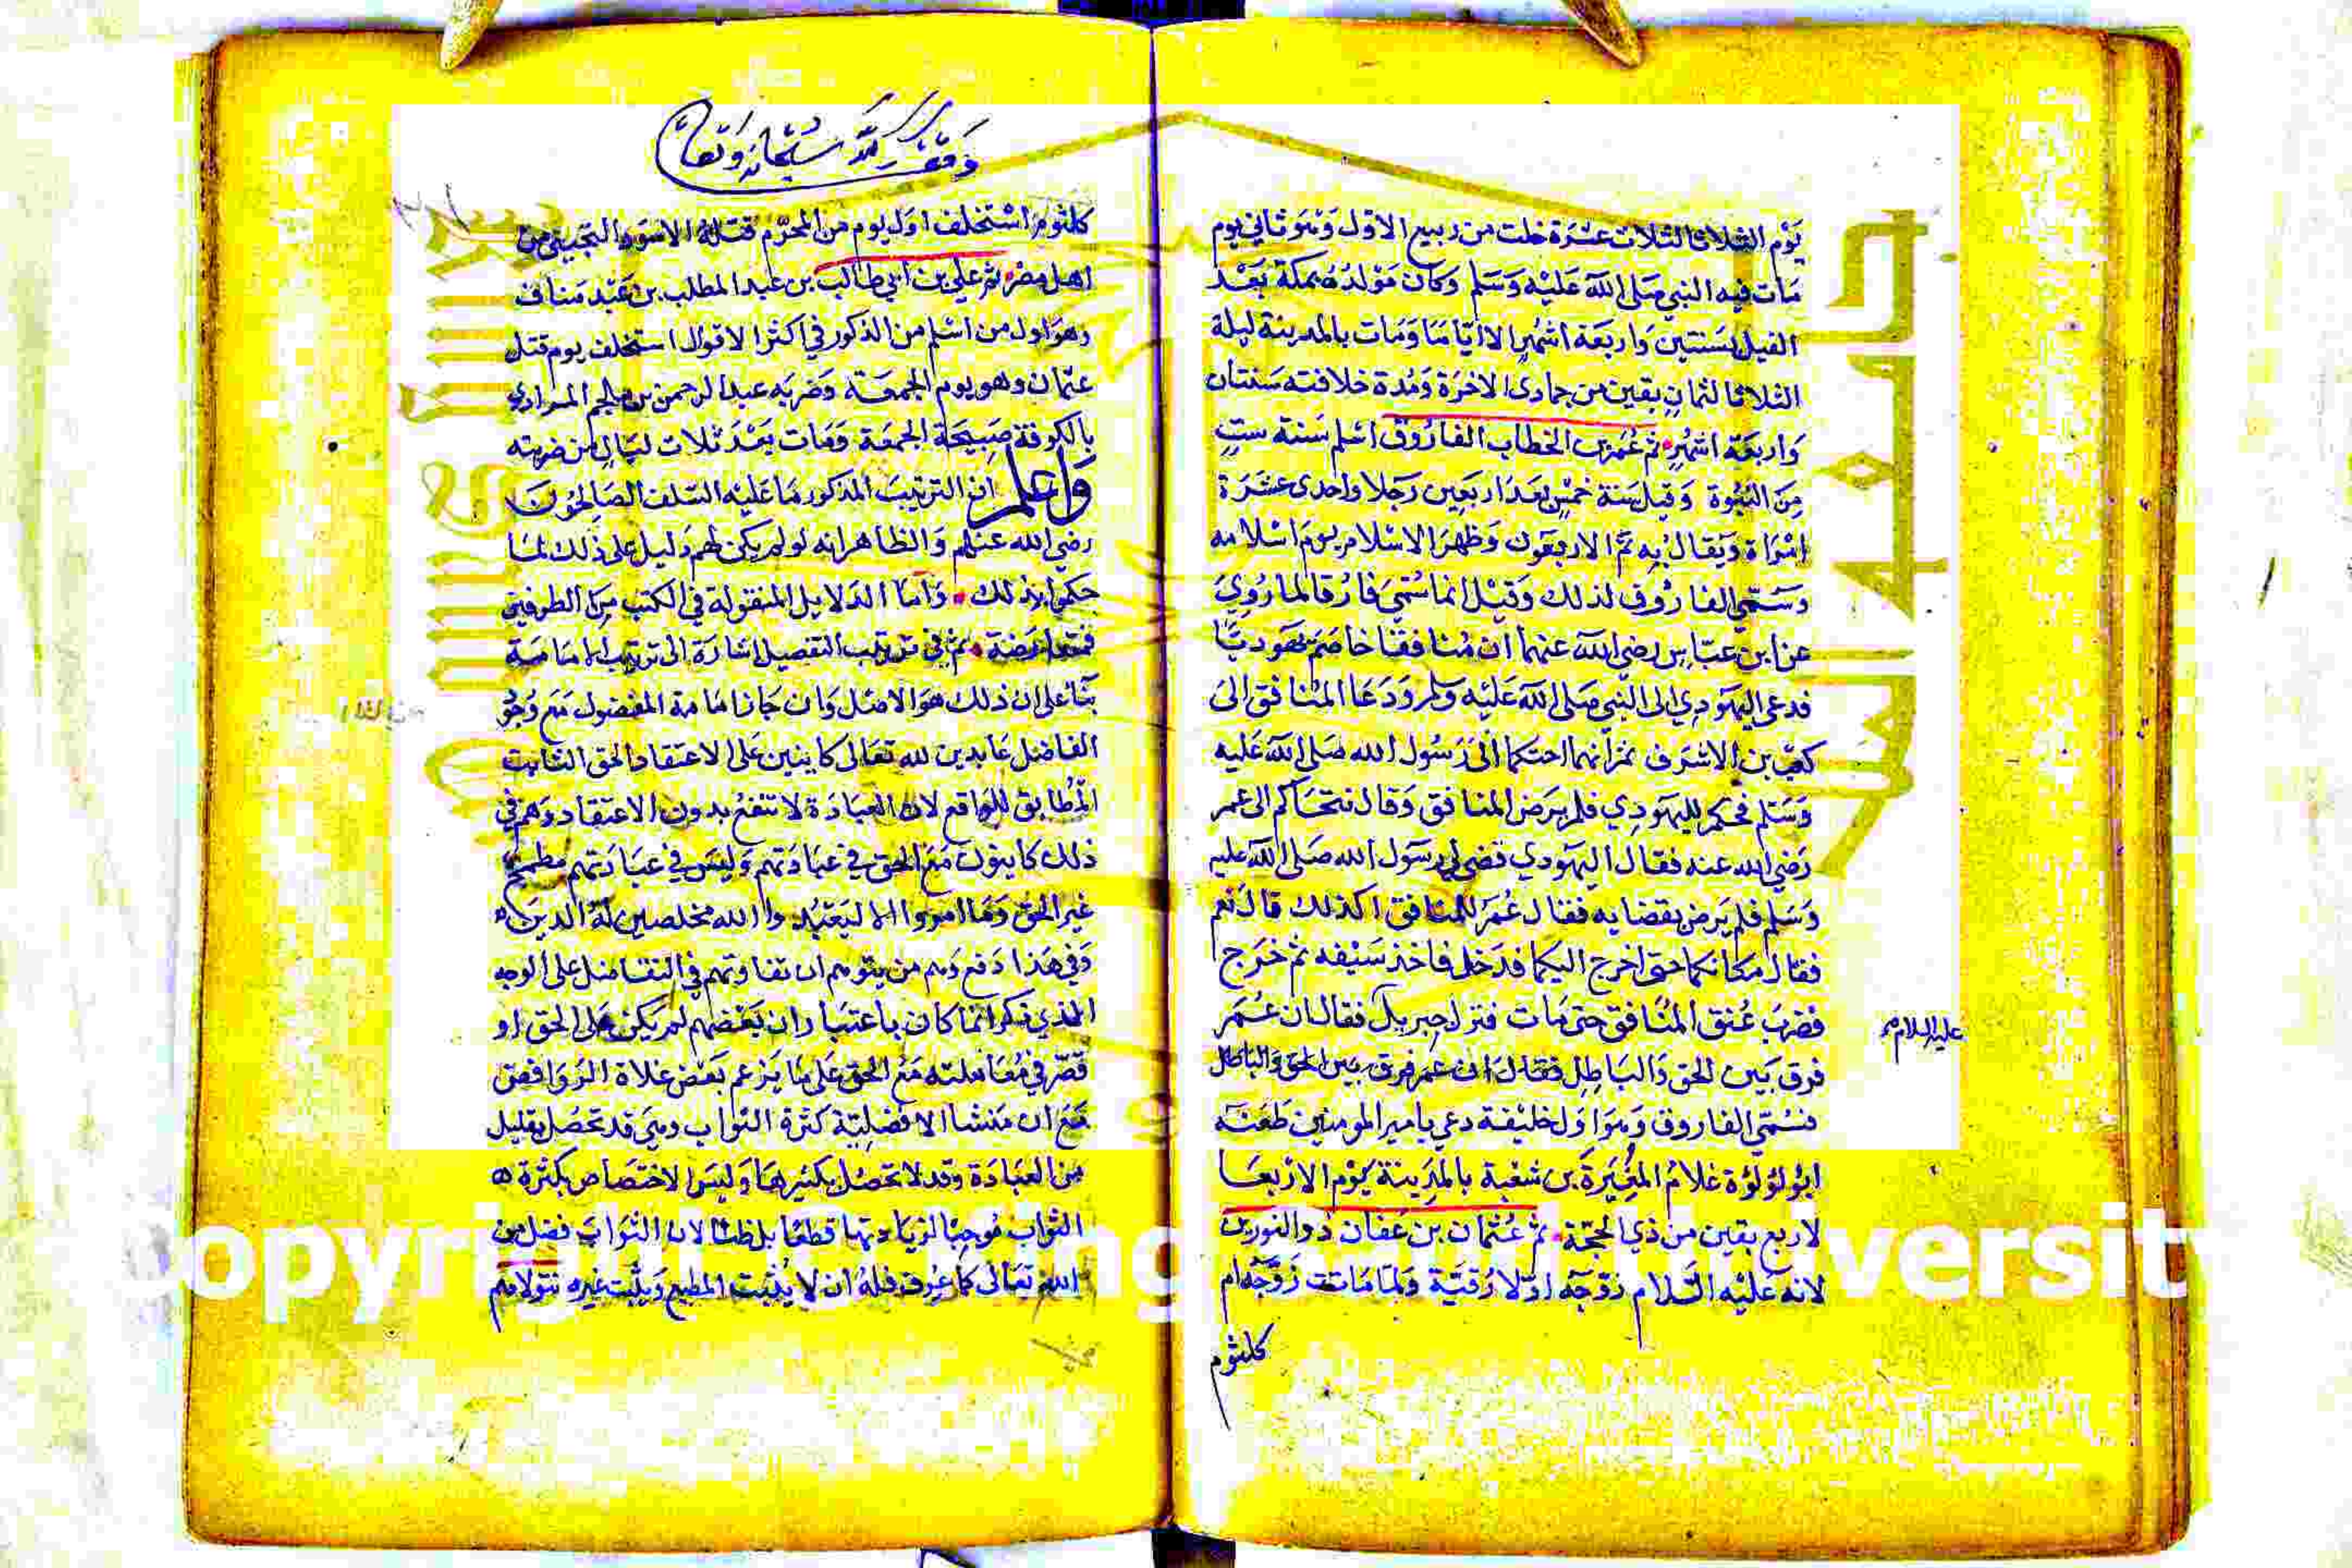 يَوْم الثلاثا لثلاث عشرة خلت من ربيع الاوّل وَهوَ ثاني يوم
مَات فيه النبي صَلى الله عَليْه وَسَلم وَكان مَوْلدُهُ بمكة بَعْد
الفيل بسَنتين وَاربعَة اشهُرٍ الا ايّامًا وَمَات بالمدينة ليلة
الثلاثا لثمانٍ بقين من جمادى الاخرَة وَمُدة خلافته سَنتان
وَاربعَة اشهُرٍ ثم عُمَر بن الخطاب الفارُوق اسْلم سَنة ستٍ
مِنَ النبُوة وَقيل سَنة خمْسٍ بَعْدَ اربَعِين رَجلا واحدى عشَرَة
امْرَاة وَيقال بِه تمّ الاربعُون وَظهرَ الاسْلام يومَ اسْلامه
وَسُمّي الفارُوق لذلك وَقيْل انما سُمّيَ فارُقا لما رُويَ
عن ابن عبّاس رضي الله عنهما ان مُنافقا خاصَمَ يَهوديًّا
فدعى اليهَودِي الى النبي صَلى الله عَليْه وسلم وَدَعَا المنافق الى
كعْب بن الاشرَف ثم انهما احتكما الىَ رَسُول الله صَلى الله عَليه
وَسَلم فحكم لليَهوَدِي فلم يَرض المنافق وَقال نتحَاكم الى عمر
رَضي الله عنه فقال اليهَودي قضى لي رسَول الله صَلى الله عَليه
وَسَلم فلم يَرض بقضايه فقال عُمَر للمنافق اكذلك قال نَعم
فقال مَكانكما حتى اخرج اليكما فدَخل فاخذ سَيْفه ثم خرَج
فضرَبَ عُنق المنَافق حتى مَات فنزل جبريل فقال ان عُمَر
عليه السلام
فرق بَين الحق وَالبَاطِل فقال ان عمَر فرق بين الحق والباطل
فسُمّي الفاروق وَهوَ اوّل خليْفة دعي باميرالمومنين طَعَنه
ابُو لؤلؤة غلامُ المغِيرَة بن شعْبة بالمدِينة يَوْم الاربعَا
لاربع بقين من ذي الحجّة ثم عُثمان بن عَفان ذو النورين
لانه عَليْه السَّلام زوّجَه اوّلا رُقيَّة وَلمّا مَاتت زَوّجَه ام
كلثوم
وقف لله سبحانه وتعالى
كلثوم استخلف اوّل يوم من المحرّم قتلهُ الاسود التجيبي من
اهل مصر ثم علي بن ابي طالب بن عبد المطلب بن عَبْد مَناف
وهوَ اوّل من اسْلم من الذكور في اكثر الاقوال استخلف يوم قتل
عثمان وهو يوم الجمعَة وَضربَه عبد الرحمن بن ملجم المرادي
بالكوفة صَبيحَة الجمعَة وَمَات بَعْدَ ثلاث ليَالٍ من ضربته
وَاعلم ان الترتيبَ المذكور مَا عَليْه السّلف الصَّالحُون
رضي الله عنهم وَالظاهر انه لو لم يكن لهم دَليل على ذلك لمَا
حكموا بذلك وَامّا الدَلايل المنقولة في الكتب مِن الطرفين
فمتعارضة ثم في ترتيب التفضيل اشارَة الى ترتيب الامَامَة
بنَا على ان ذلك هوَ الاصْل وَان جَاز امَامة المفضول مَع وُجُو
الفاضل عَابدين لله تعَالى كاينين على الاعتقاد الحق الثابت
المُطابق للواقع لان العبَادَة لا تنفعُ بدون الاعتقاد وَهم في
ذلك كاينون مَعَ الحق في عبَادَتهم وَليسَ في عبَادَتهم مطمح
غير الحق وَمَا امروا الا ليَعْبُدوا الله مخلصين له الدين
وَفي هَذا دَفع وَهم من يتوهم ان تفاوتهم في التفاضل على الوجه
الذي ذكر انما كان باعتبار ان بَعْضهم لم يَكن على الحق او
قصّر في مُعَاملته مَعَ الحق عَلى مَا يَزعم بَعْض غلاة الرّوَافض
مَع ان مَنشا الافضليّة كثرة الثوَاب وهيَ قد تحصُل بقليل
من العبَادَة وقد لا تحصُل بكثيرهَا وَليسَ الاختصَاص بكثرة
الثوَاب مُوجبًا لزيَادتها قطعًا بل ظنّا لان الثوَابَ فضل من
الله تعَالى كما عُرف فلهُ ان لا يُثيْبَ المطيع وَيثيْب غيره نتولاهم
Copyright King Universit